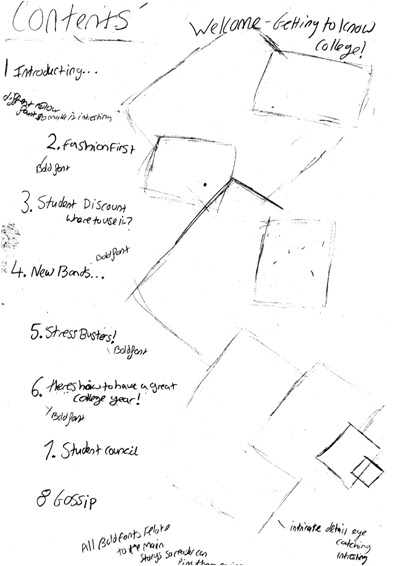 Contents
Welcome - Getting to know
College!
1 Introducting...
different colour
font to make it intresting
2. Fashion First
Bold font
3. Student Discount
where to use it?
Bold font
4. New Bands...
5. Stress Busters!
Bold font
6. Heres how to have a great
college year!
Bold font
7. Student council
8 Gossip
intricate detail eye
catching
intresting
All Bold fonts relate
to the main
storys so reader can